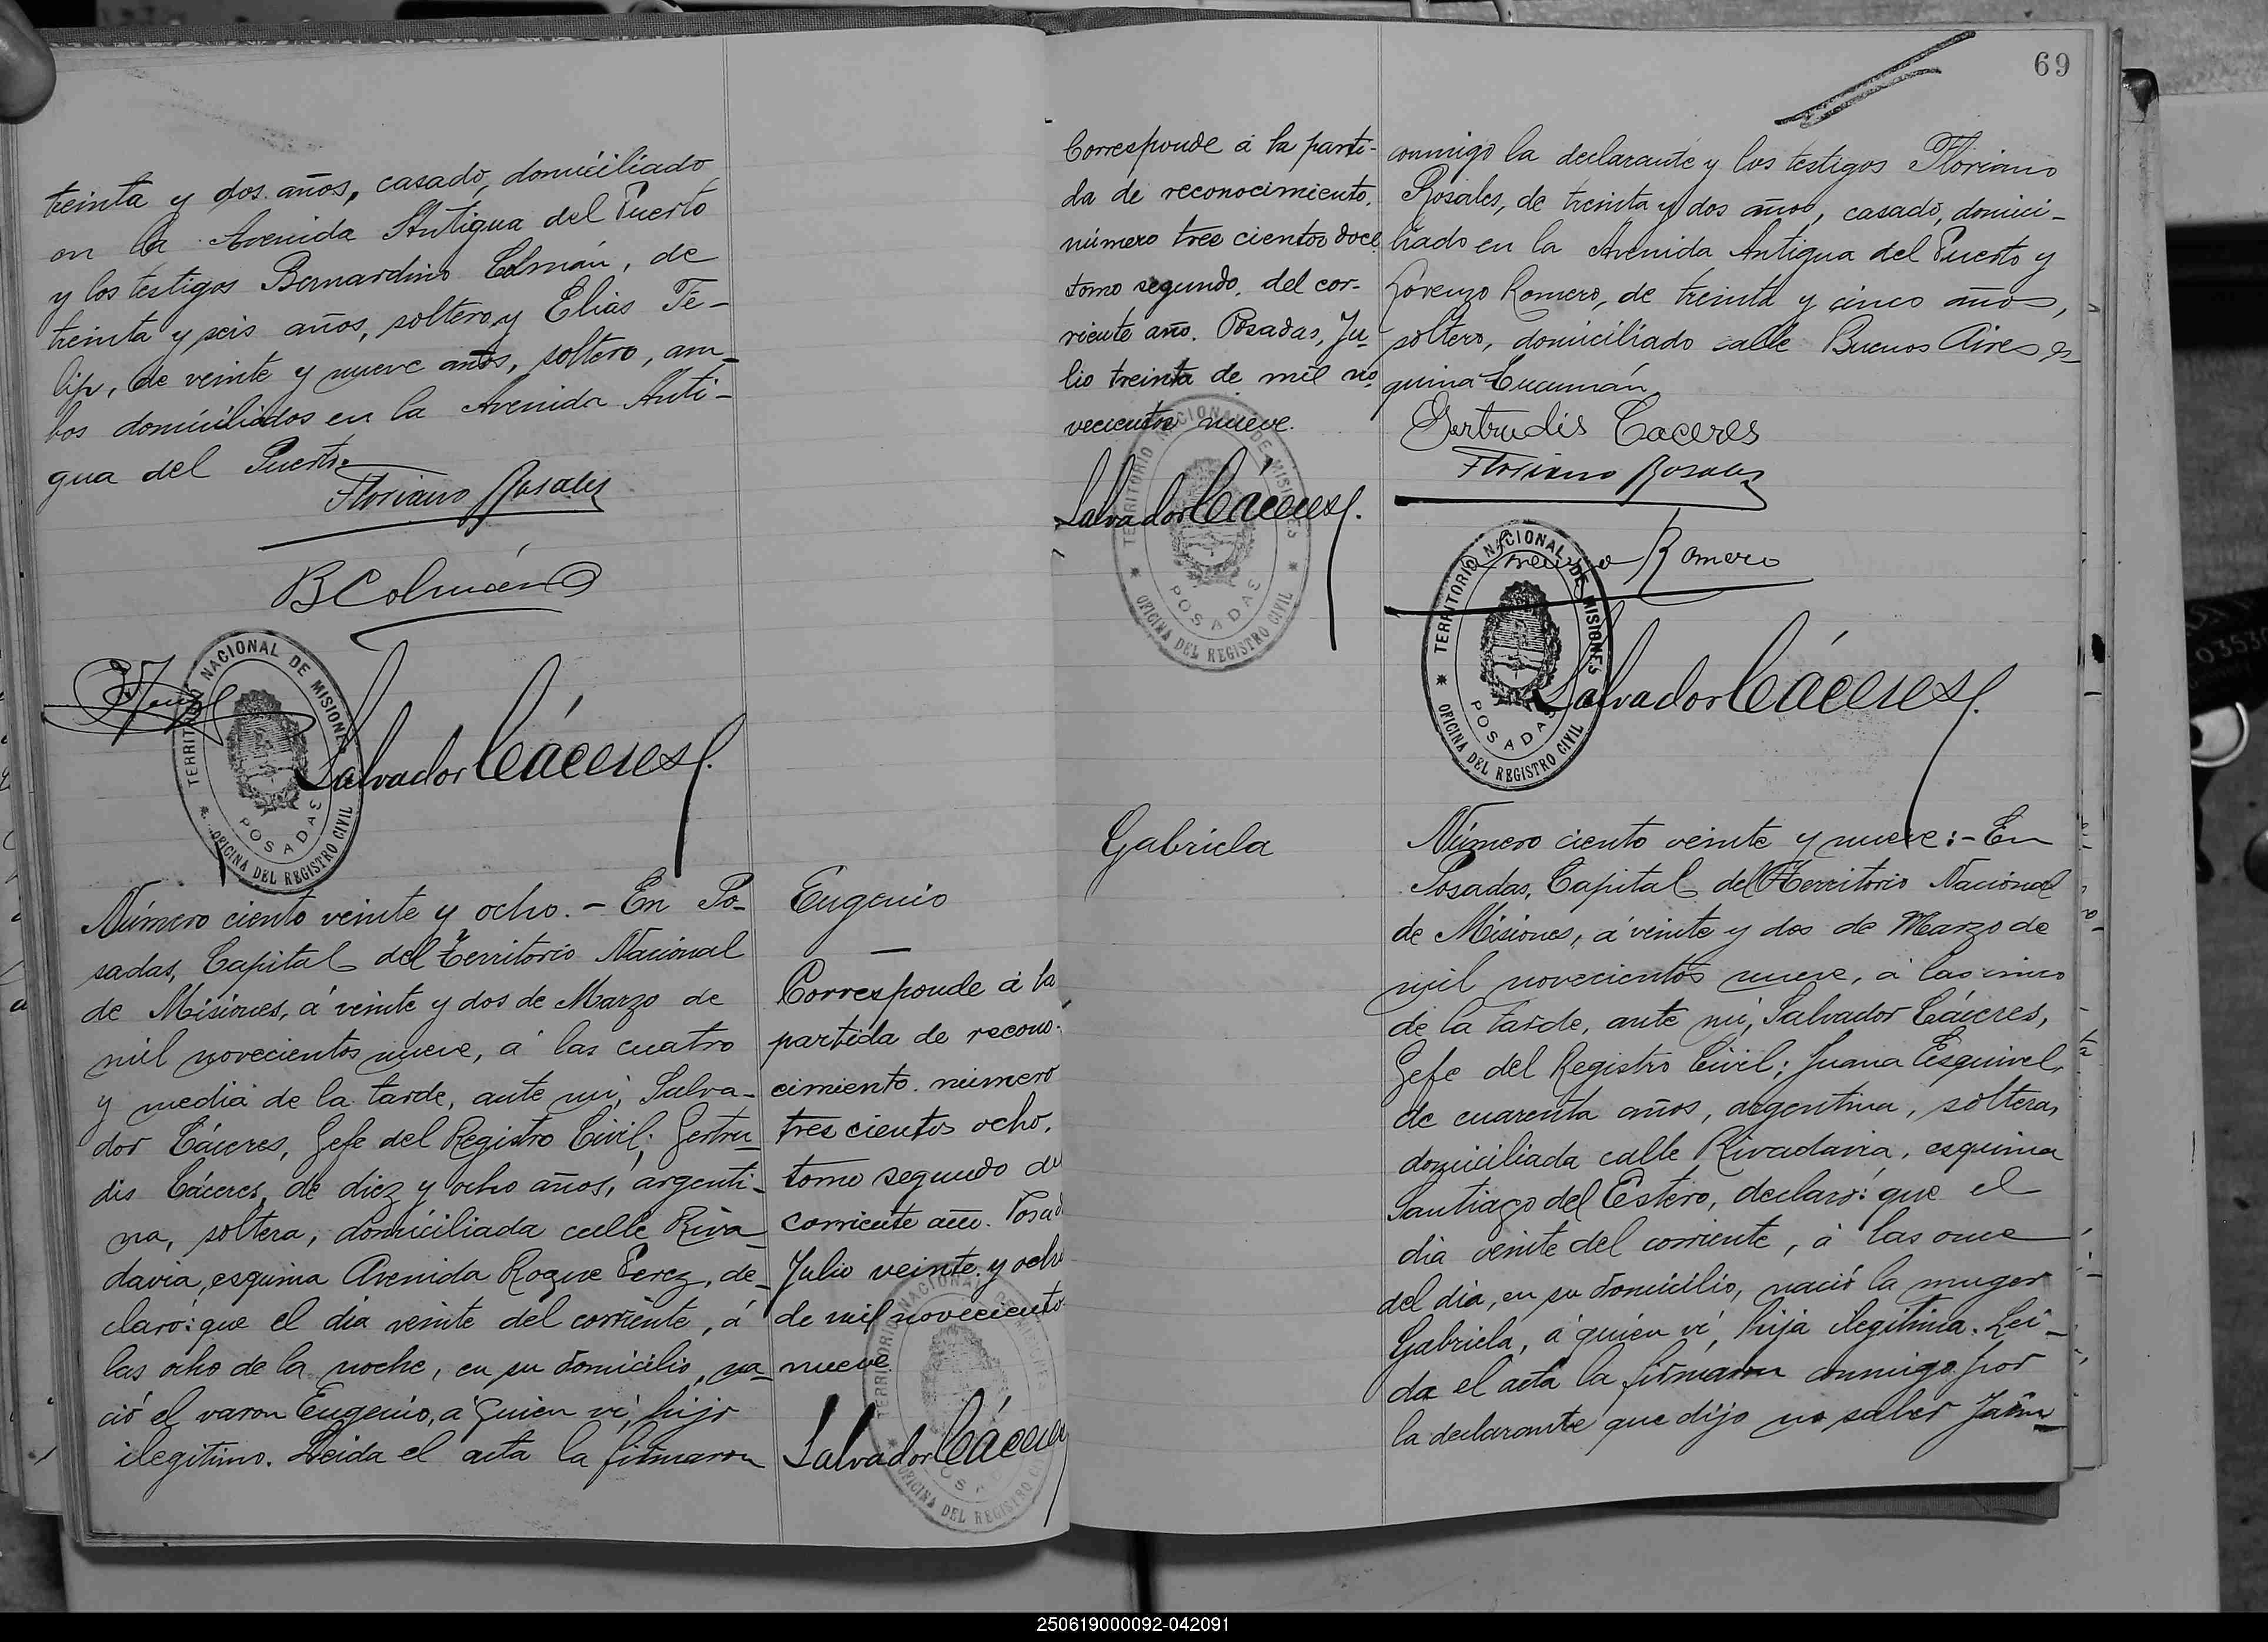 treinta y dos años, casado, domiciliado
en la Avenida Antigua del Puerto
y los testigos Bernardino Colmán, de
treinta y seis años, soltero, y Elias Fe-
lip, de veinte y nueve años, soltero, am-
bos domiciliados en la Avenida Anti-
gua del Puerto.
Floriano Rosales
B Colmán
TERRITORIO NACIONAL DE MISIONES
POSADAS
OFICINA DEL REGISTRO CIVIL
Salvador Cáceres
Número ciento veinte y ocho. - En Po-
sadas, Capital del Territorio Nacional
de Misiones, á veinte y dos de Marzo de
mil novecientos nueve, á las cuatro
y media de la tarde, ante mí, Salva-
dor Cáceres, Gefe del Registro Civil; Gertru-
dis Cáceres, de diez y ocho años, argenti-
na, soltera, domiciliada calle Riva-
davia, esquina Avenida Roque Perez, de-
claró: que el dia veinte del corriente, á
las ocho de la noche, en su domicilio, na-
ció el varon Eugenio, á quien ví, hijo
ilegitimo. Leida el acta la firmaron
Eugenio
Corresponde á la
partida de recono-
cimiento. número
tres cientos ocho,
tomo segundo del
corriente año. Posad
Julio veinte y ocho
de mil novecientos
nueve
Salvador Cáceres
TERRITORIO NACIONAL DE MISIONES
POSADAS
OFICINA DEL REGISTRO CIVIL
69
Corresponde á la parti-
da de reconocimiento.
número tres cientos doce
tomo segundo. del cor-
riente año. Posadas, Ju-
lio treinta de mil no
vecientos nueve.
Salvador Cáceres
TERRITORIO NACIONAL DE MISIONES
POSADAS
OFICINA DEL REGISTRO CIVIL
conmigo la declarante y los testigos Floriano
Rosales, de treinta y dos años, casado, domici-
liado en la Avenida Antigua del Puerto y
Lorenzo Romero, de treinta y cinco años,
soltero, domiciliado calle Buenos Aires es-
quina Tucumán
Gertrudis Caceres
Floriano Rosales
Lorenzo Romero
TERRITORIO NACIONAL DE MISIONES
POSADAS
OFICINA DEL REGISTRO CIVIL
Salvador Cáceres
Gabriela
Número ciento veinte y nueve: - En
Posadas, Capital del Territorio Nacional
de Misiones, á veinte y dos de Marzo de
mil novecientos nueve, á las cinco
de la tarde, ante mí, Salvador Cáceres,
Gefe del Registro Civil; Juana Esquivel,
de cuarenta años, argentina, soltera,
domiciliada calle Rivadavia, esquina
Santiago del Estero, declaró: que el
dia veinte del corriente, á las once
del dia, en su domicilio, nació la muger
Gabriela, á quien ví, hija ilegitima. Lei-
da el acta la firmaron conmigo por
la declarante que dijo no saber
250619000092-042091